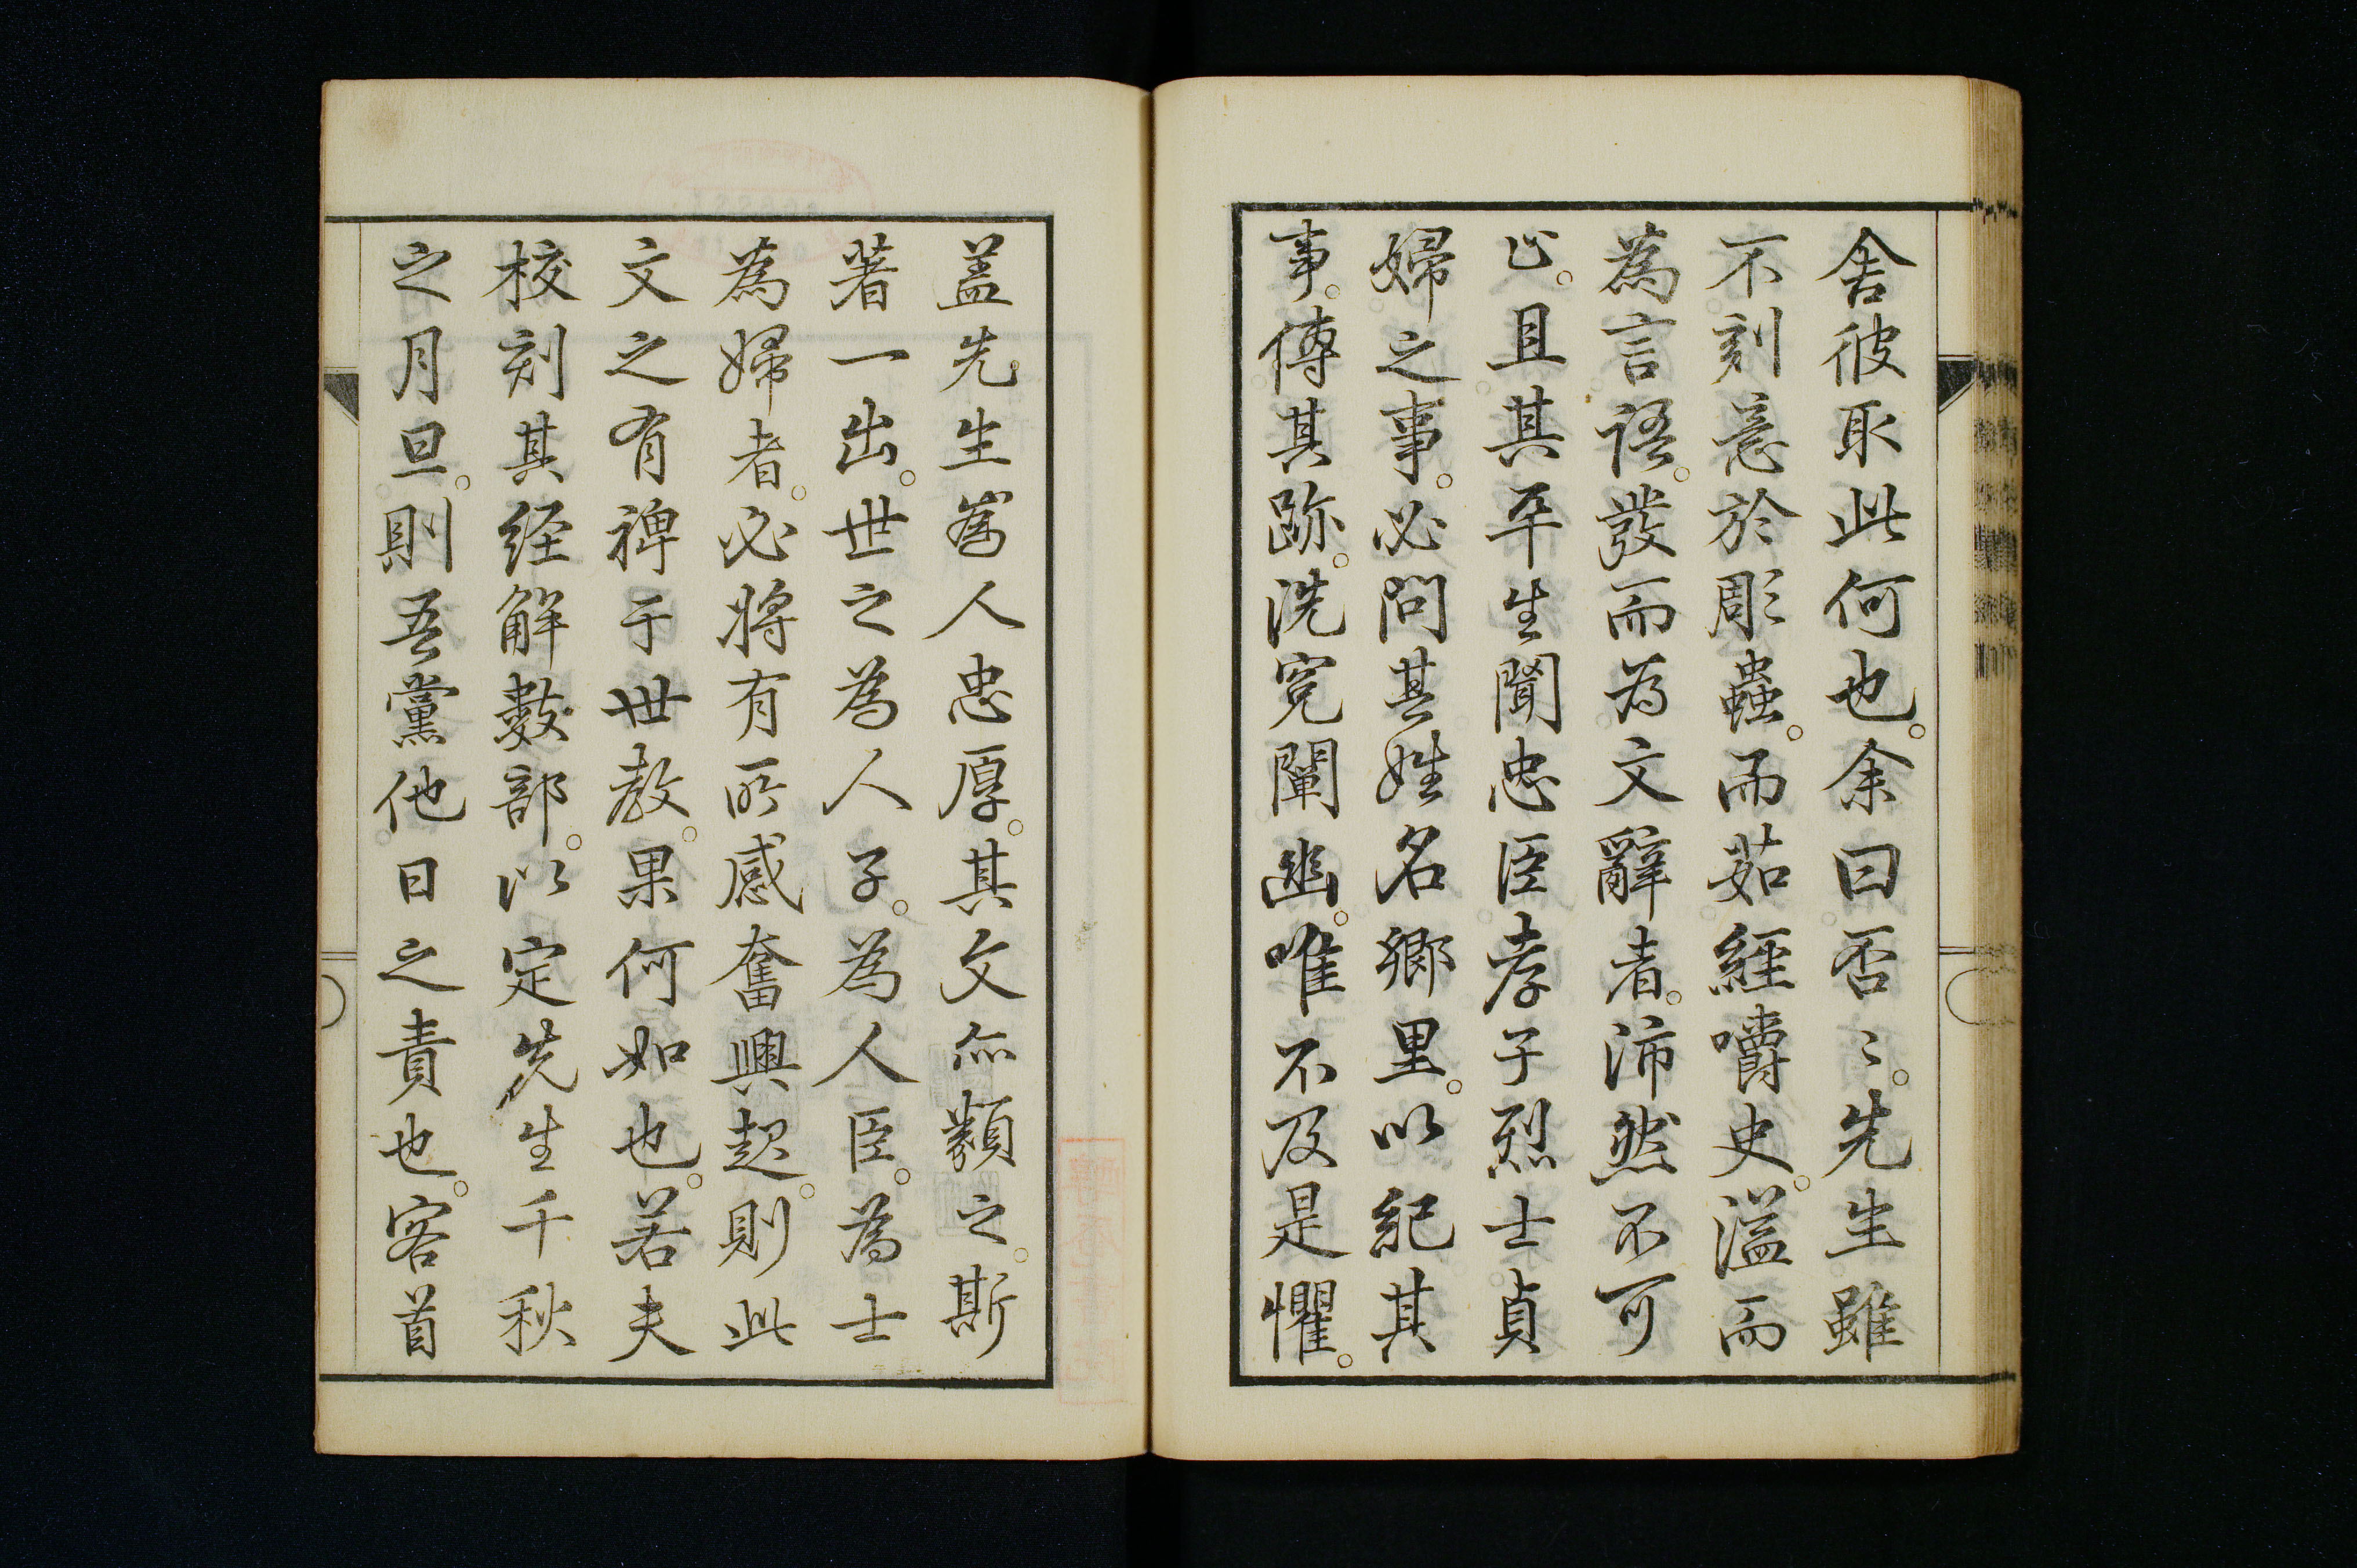 舍彼取此何也。余曰否〻。先生雖
不刻意於彫蟲。而茹經嚼史。溢而
為言語。發而為文辭者。沛然不可
止。且其平生聞忠臣孝子烈士貞
婦之事。必問其姓名鄉里。以紀其
事。傳其跡。洗寃闡幽。唯不及是懼。
盖先生為人忠厚。其文亦類之。斯
著一出。世之為人子。為人臣。為士
為婦者。必將有所感奮興起。則此
文之有裨于世教。果何如也。若夫
校刻其経解數部。以定先生千秋
之月旦。則吾黨他日之責也。客首